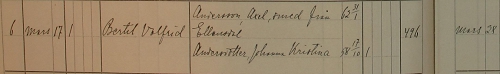 Andersson Axel, smed från 62 31/1
6 mars 17 1 Bertil Valfrid Ellensdal 496 mars 28
Andersdotter Johanna Kristina 58 17/10 1